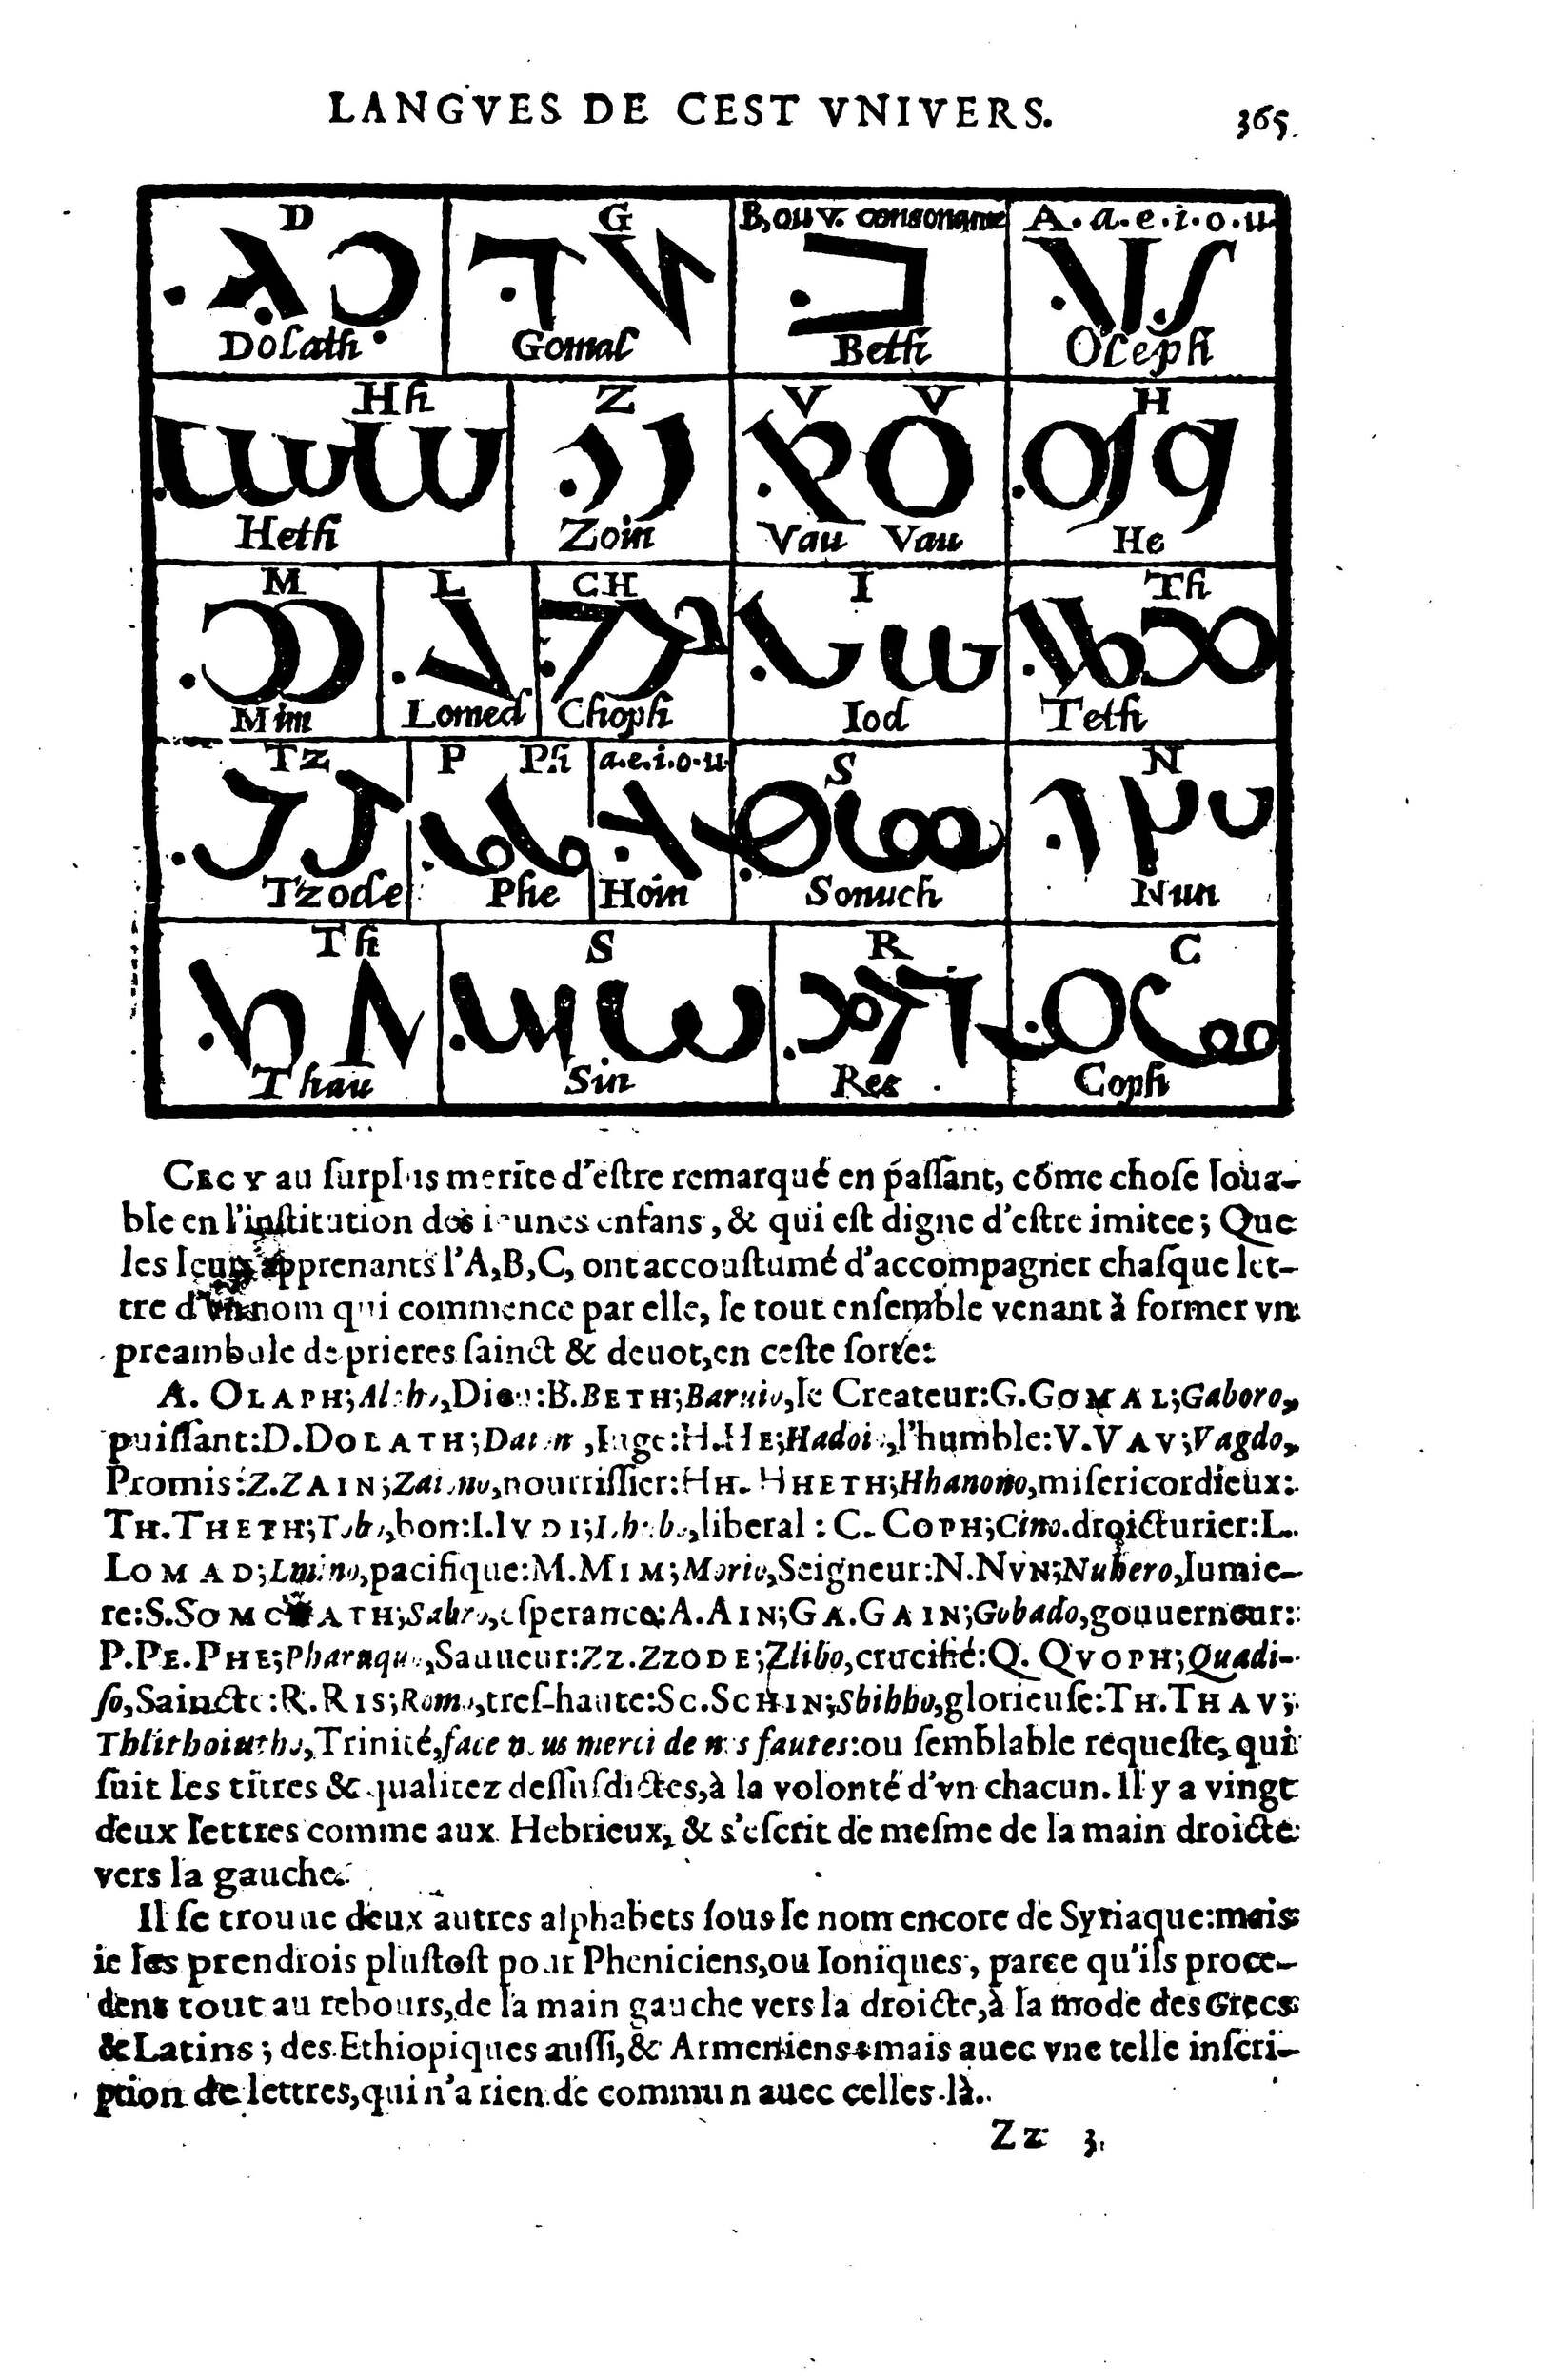 LANGVES DE CEST VNIVERS. 365
D G B, ou v. consonante A. a. e. i. o. u.
Dolath Gomal Beth Oleph
Hh Z V V H
Heth Zoin Vau Vau He
M L CH I Th
Mim Lomed Choph Iod Teth
Tz P Ph a.e.i.o.u. S N
Tzode Phe Hoin Sonuch Nun
Th S R C
Thau Sin Res Coph
CECY au ſurplus merite d'eſtre remarqué en paſſant, cõme choſe loua-
ble en l'inſtitution des ieunes enfans, & qui eſt digne d'eſtre imitee; Que
les leurs apprenants l'A,B,C, ont accouſtumé d'accompagner chaſque let-
tre d'vn nom qui commence par elle, le tout enſemble venant à former vn
preambule de prieres ſainct & deuot, en ceſte ſorte:
A. OLAPH; Dieu: B. BETH; le Createur: G. GOMAL; Gaboro,
puiſſant: D. DOLATH; Iuge: H. HE; l'humble: V. VAV; Vagdo,
Promis: Z. ZAIN; nourriſſier: HH. HHETH; Hhanono, miſericordieux:
TH. THETH; bon: I. IVDI; liberal: C. COPH; Cino. droicturier: L.
LOMAD; pacifique: M. MIM; Morio, Seigneur: N. NVN; Nuhero, lumie-
re: S. eſperance: A. AIN; GA. GAIN; Gobado, gouuerneur:
P. PE. PHE; Sauueur: Zz. ZZODE; Zlibo, crucifié: Q. QVOPH; Quadi-
ſo, Saincte: R. RIS; treſ-haute: SC. SCHIN; Sbibbo, glorieuſe: TH. THAV;
Trinité, face nous merci de nos fautes: ou ſemblable requeſte, qui
ſuit les titres & qualitez deſſuſdictes, à la volonté d'vn chacun. Il y a vingt
deux lettres comme aux Hebrieux, & s'eſcrit de meſme de la main droicte
vers la gauche.
Il ſe trouue deux autres alphabets ſous le nom encore de Syriaque: mais
ie les prendrois pluſtoſt pour Pheniciens, ou Ioniques, parce qu'ils proce-
dent tout au rebours, de la main gauche vers la droicte, à la mode des Grecs
& Latins; des Ethiopiques auſſi, & Armeniens: mais auec vne telle inſcri-
ption de lettres, qui n'a rien de commun auec celles-là.
Zz 3